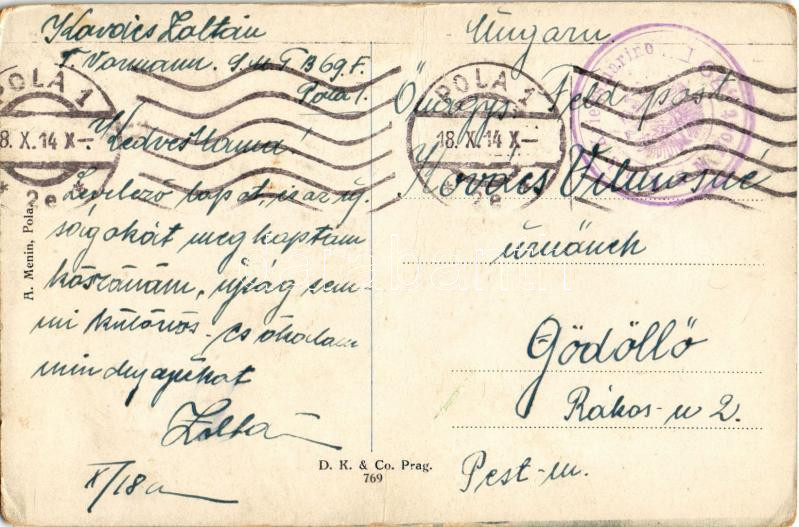 Kovács Zoltán
T. Vormann. S.M.T.B 69.F.
Pola 1.
Ungarn.
Feld post
POLA 1
18.X.14 X–
* 2e *
POLA 1
18.X.14 X–
* 2e *
Kedves Mama!
Levelező lapot, is az új-
ságokat megkaptam
köszönöm, újság sem-
mi különös. Csókolom
mindnyájukat
Zoltán
X/18án
Önagys.
Kovács Vilmosné
úrnőnek
Gödöllő
Rákos-u 2.
Pest-m.
A. Menin, Pola.
D. K. & Co. Prag.
769